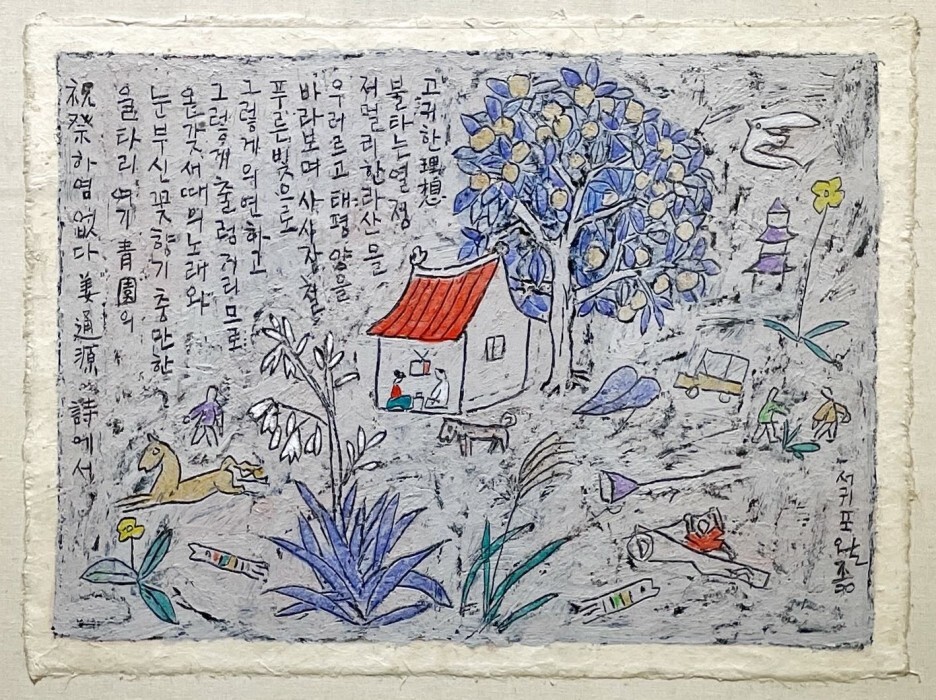 고귀한 理想
불타는 열정
저멀리 한라산을
우러르고 태평양을
바라보며 사시장철
푸른빛으로
그렇게 의연하고
그렇게 출렁거리므로
온갖 새때의 노래와
눈부신 꽃향기 충만한
울타리 여기 青園의
祝祭하염없다 姜通源 詩에서
서귀포 왈종
90